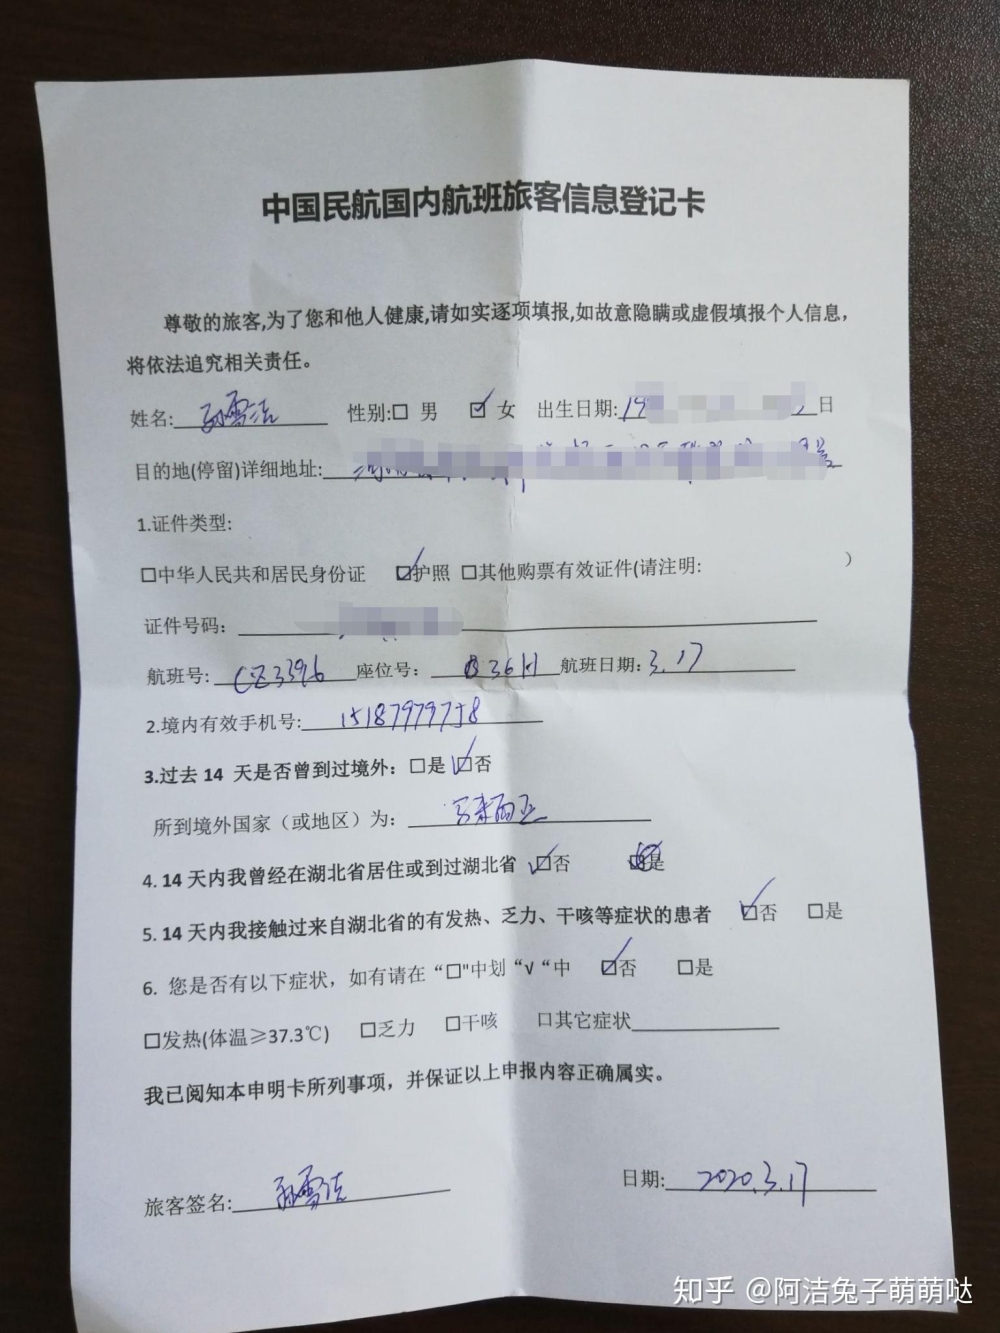 中国民航国内航班旅客信息登记卡
尊敬的旅客,为了您和他人健康,请如实逐项填报,如故意隐瞒或虚假填报个人信息,
将依法追究相关责任。
姓名: 孙雪洁 性别:□ 男 ☑ 女 出生日期: 19 日
目的地(停留)详细地址:
1.证件类型:
□中华人民共和居民身份证 ☑护照 □其他购票有效证件(请注明: )
证件号码:
航班号: CZ3396 座位号: 36H 航班日期: 3.17
2.境内有效手机号: 15187979758
3.过去 14 天是否曾到过境外: □是 ☑否
所到境外国家（或地区）为: 马来西亚
4. 14 天内我曾经在湖北省居住或到过湖北省 ☑否 是
5. 14 天内我接触过来自湖北省的有发热、乏力、干咳等症状的患者 ☑否 □是
6. 您是否有以下症状，如有请在“□"中划“√“中 ☑否 □是
□发热(体温≥37.3℃) □乏力 □干咳 口其它症状
我已阅知本申明卡所列事项，并保证以上申报内容正确属实。
旅客签名: 孙雪洁 日期: 2020.3.17
知乎 @阿洁兔子萌萌哒